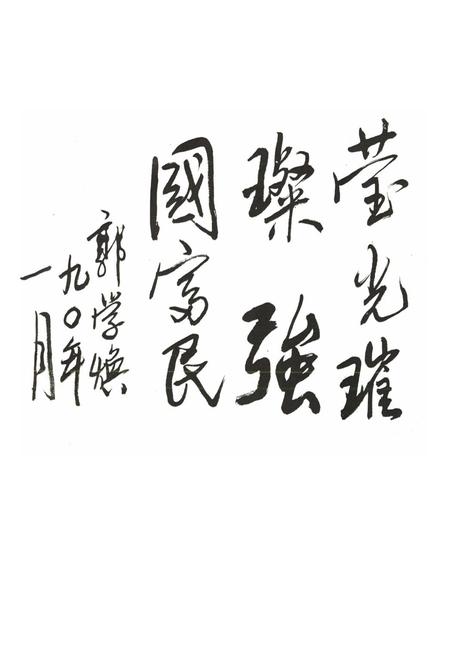 莹光璀
璨 強
國富民
郭学焕
九〇年
一月